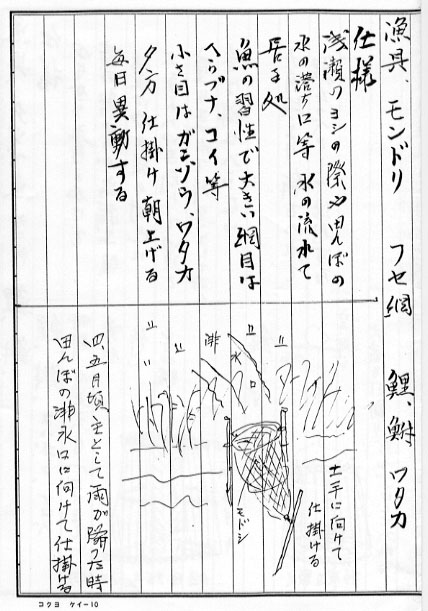 漁具、モンドリ　フセ網　鯉、鮒　ワタカ
仕様
浅瀬のヨシの際や田んぼの
水の落ケ口等 水の流れて
居る処
魚の習性で大きい網目は
ヘラブナ、コイ等
小さ目はガンゾウ、ワタカ
夕方 仕掛け 朝上げる
毎日異動する
土手に向けて
仕掛ける
排水口
モドシ
四、五月頃主として雨が降った時
田んぼの排水口に向けて仕掛ける
コクヨ ケイー10